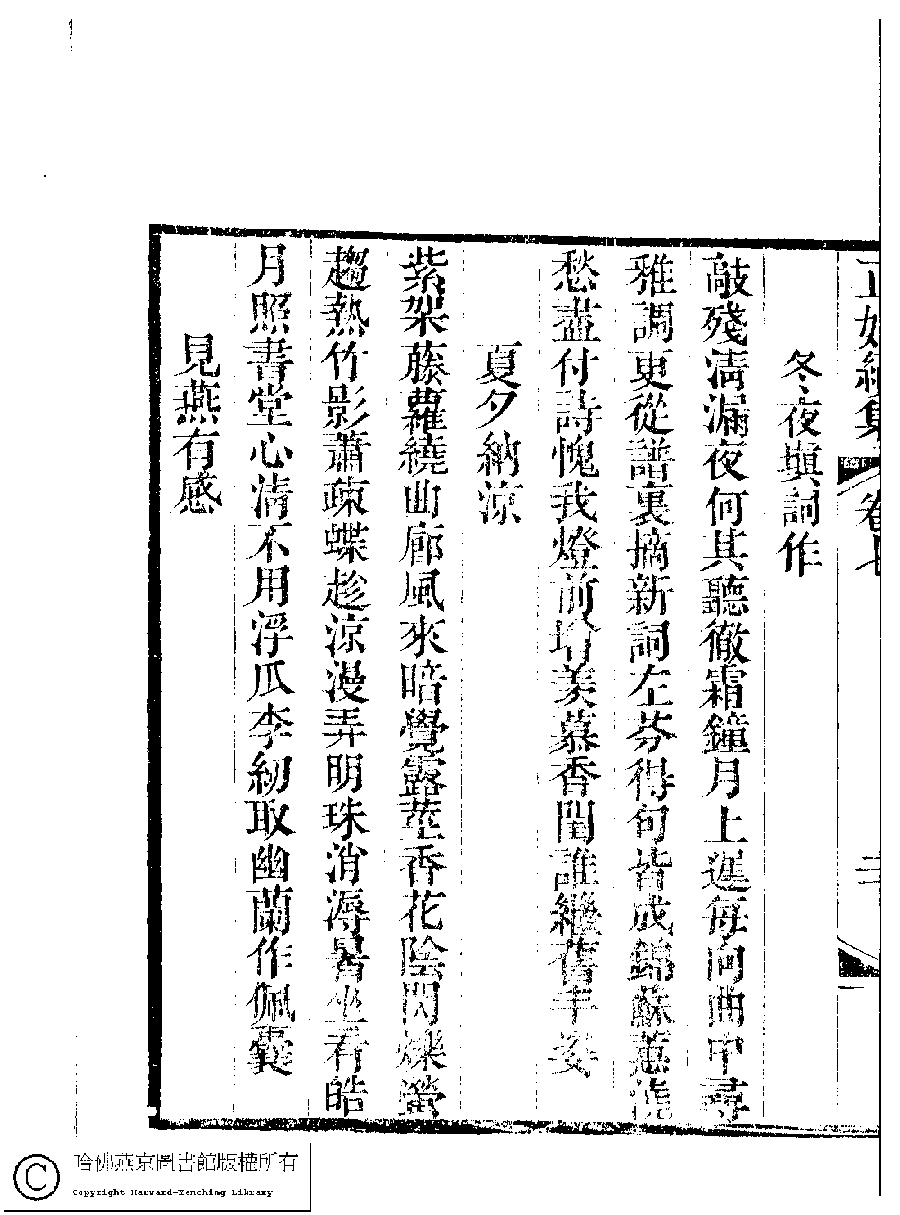 正始續集 卷七
冬夜塡詞作
敲殘清漏夜何其聽徹霜鐘月上遲每向曲中尋
雅調更從譜裏摘新詞左芬得句皆成錦蘇蕙
愁盡付詩愧我燈前增羨慕香閨誰繼舊丰姿
夏夕納涼
紫架藤蘿繞曲廊風來暗覺露莖香花陰閃爍螢
趨熱竹影蕭疎蝶趁涼漫弄明珠消溽暑坐看皓
月照書堂心清不用浮瓜李紉取幽蘭作佩囊
見燕有感
哈佛燕京圖書館版權所有
Copyright Harvard-Yenching Library